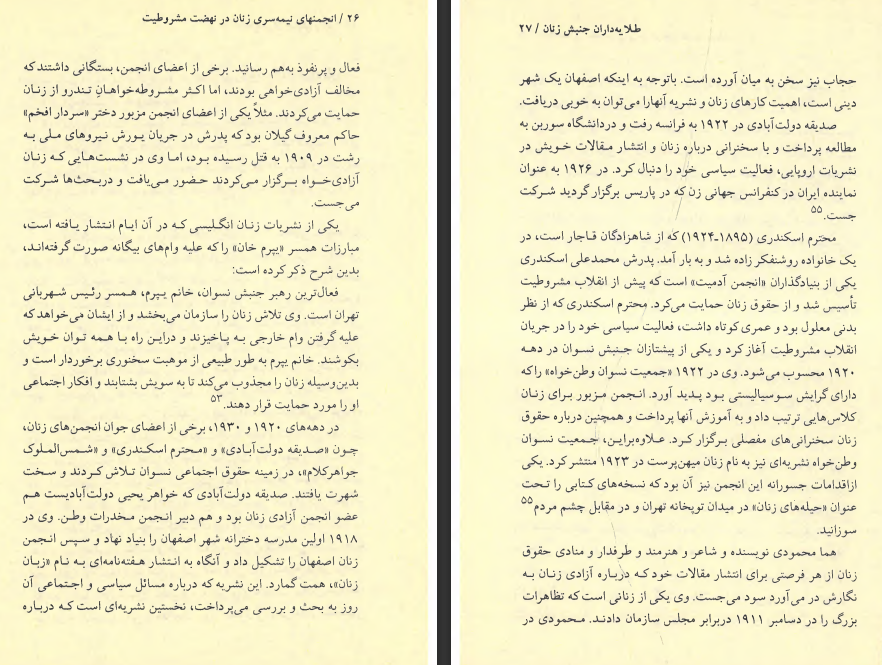 ۲۶ / انجمنهای نیمه‌سری زنان در نهضت مشروطیت
فعال و پرنفوذ به‌هم رسانید. برخی از اعضای انجمن، بستگانی داشتند که
مخالف آزادی‌خواهی بودند، اما اکثر مشروطه‌خواهانِ تندرو از زنان
حمایت می‌کردند. مثلاً یکی از اعضای انجمن مزبور دختر «سردار افخم»
حاکم معروف گیلان بود که پدرش در جریان یورش نیروهای ملی به
رشت در ۱۹۰۹ به قتل رسیده بود، اما وی در نشست‌هایی که زنان
آزادی‌خواه برگزار می‌کردند حضور می‌یافت و دربحث‌ها شرکت
می‌جست.
یکی از نشریات زنان انگلیسی که در آن ایام انتشار یافته است،
مبارزات همسر «یپرم خان» را که علیه وام‌های بیگانه صورت گرفته‌اند،
بدین شرح ذکر کرده است:
فعال‌ترین رهبر جنبش نسوان، خانم یپرم، همسر رئیس شهربانی
تهران است. وی تلاش زنان را سازمان می‌بخشد و از ایشان می‌خواهد که
علیه گرفتن وام خارجی به پاخیزند و دراین راه با همه توان خویش
بکوشند. خانم یپرم به طور طبیعی از موهبت سخنوری برخوردار است و
بدین‌وسیله زنان را مجذوب می‌کند تا به سویش بشتابند و افکار اجتماعی
او را مورد حمایت قرار دهند.۵۳
در دهه‌های ۱۹۲۰ و ۱۹۳۰، برخی از اعضای جوان انجمن‌های زنان،
چون «صدیقه دولت‌آبادی» و «محترم اسکندری» و «شمس‌الملوک
جواهرکلام»، در زمینه حقوق اجتماعی نسوان تلاش کردند و سخت
شهرت یافتند. صدیقه دولت‌آبادی که خواهر یحیی دولت‌آبادیست هم
عضو انجمن آزادی زنان بود و هم دبیر انجمن مخدرات وطن. وی در
۱۹۱۸ اولین مدرسه دخترانه شهر اصفهان را بنیاد نهاد و سپس انجمن
زنان اصفهان را تشکیل داد و آنگاه به انتشار هفته‌نامه‌ای به نام «زبان
زنان»، همت گمارد. این نشریه که درباره مسائل سیاسی و اجتماعی آن
روز به بحث و بررسی می‌پرداخت، نخستین نشریه‌ای است که درباره
طلایه‌داران جنبش زنان / ۲۷
حجاب نیز سخن به میان آورده است. باتوجه به اینکه اصفهان یک شهر
دینی است، اهمیت کارهای زنان و نشریه آنهارا می‌توان به خوبی دریافت.
صدیقه دولت‌آبادی در ۱۹۲۲ به فرانسه رفت و دردانشگاه سوربن به
مطالعه پرداخت و با سخنرانی درباره زنان و انتشار مقالات خویش در
نشریات اروپایی، فعالیت سیاسی خود را دنبال کرد. در ۱۹۲۶ به عنوان
نماینده ایران در کنفرانس جهانی زن که در پاریس برگزار گردید شرکت
جست.۵۵
محترم اسکندری (۱۸۹۵ـ۱۹۲۴) که از شاهزادگان قاجار است، در
یک خانواده روشنفکر زاده شد و به بار آمد. پدرش محمدعلی اسکندری
یکی از بنیادگذاران «انجمن آدمیت» است که پیش از انقلاب مشروطیت
تأسیس شد و از حقوق زنان حمایت می‌کرد. محترم اسکندری که از نظر
بدنی معلول بود و عمری کوتاه داشت، فعالیت سیاسی خود را در جریان
انقلاب مشروطیت آغاز کرد و یکی از پیشتازان جنبش نسوان در دهه
۱۹۲۰ محسوب می‌شود. وی در ۱۹۲۲ «جمعیت نسوان وطن‌خواه» را که
دارای گرایش سوسیالیستی بود پدید آورد. انجمن مزبور برای زنان
کلاس‌هایی ترتیب داد و به آموزش آنها پرداخت و همچنین درباره حقوق
زنان سخنرانی‌های مفصلی برگزار کرد. علاوه‌براین، جمعیت نسوان
وطن‌خواه نشریه‌ای نیز به نام زنان میهن‌پرست در ۱۹۲۳ منتشر کرد. یکی
ازاقدامات جسورانه این انجمن نیز آن بود که نسخه‌های کتابی را تحت
عنوان «حیله‌های زنان» در میدان توپخانه تهران و در مقابل چشم مردم۵۵
سوزانید.
هما محمودی نویسنده و شاعر و هنرمند و طرفدار و منادی حقوق
زنان از هر فرصتی برای انتشار مقالات خود که درباره آزادی زنان به
نگارش در می‌آورد سود می‌جست. وی یکی از زنانی است که تظاهرات
بزرگ را در دسامبر ۱۹۱۱ دربرابر مجلس سازمان دادند. محمودی در